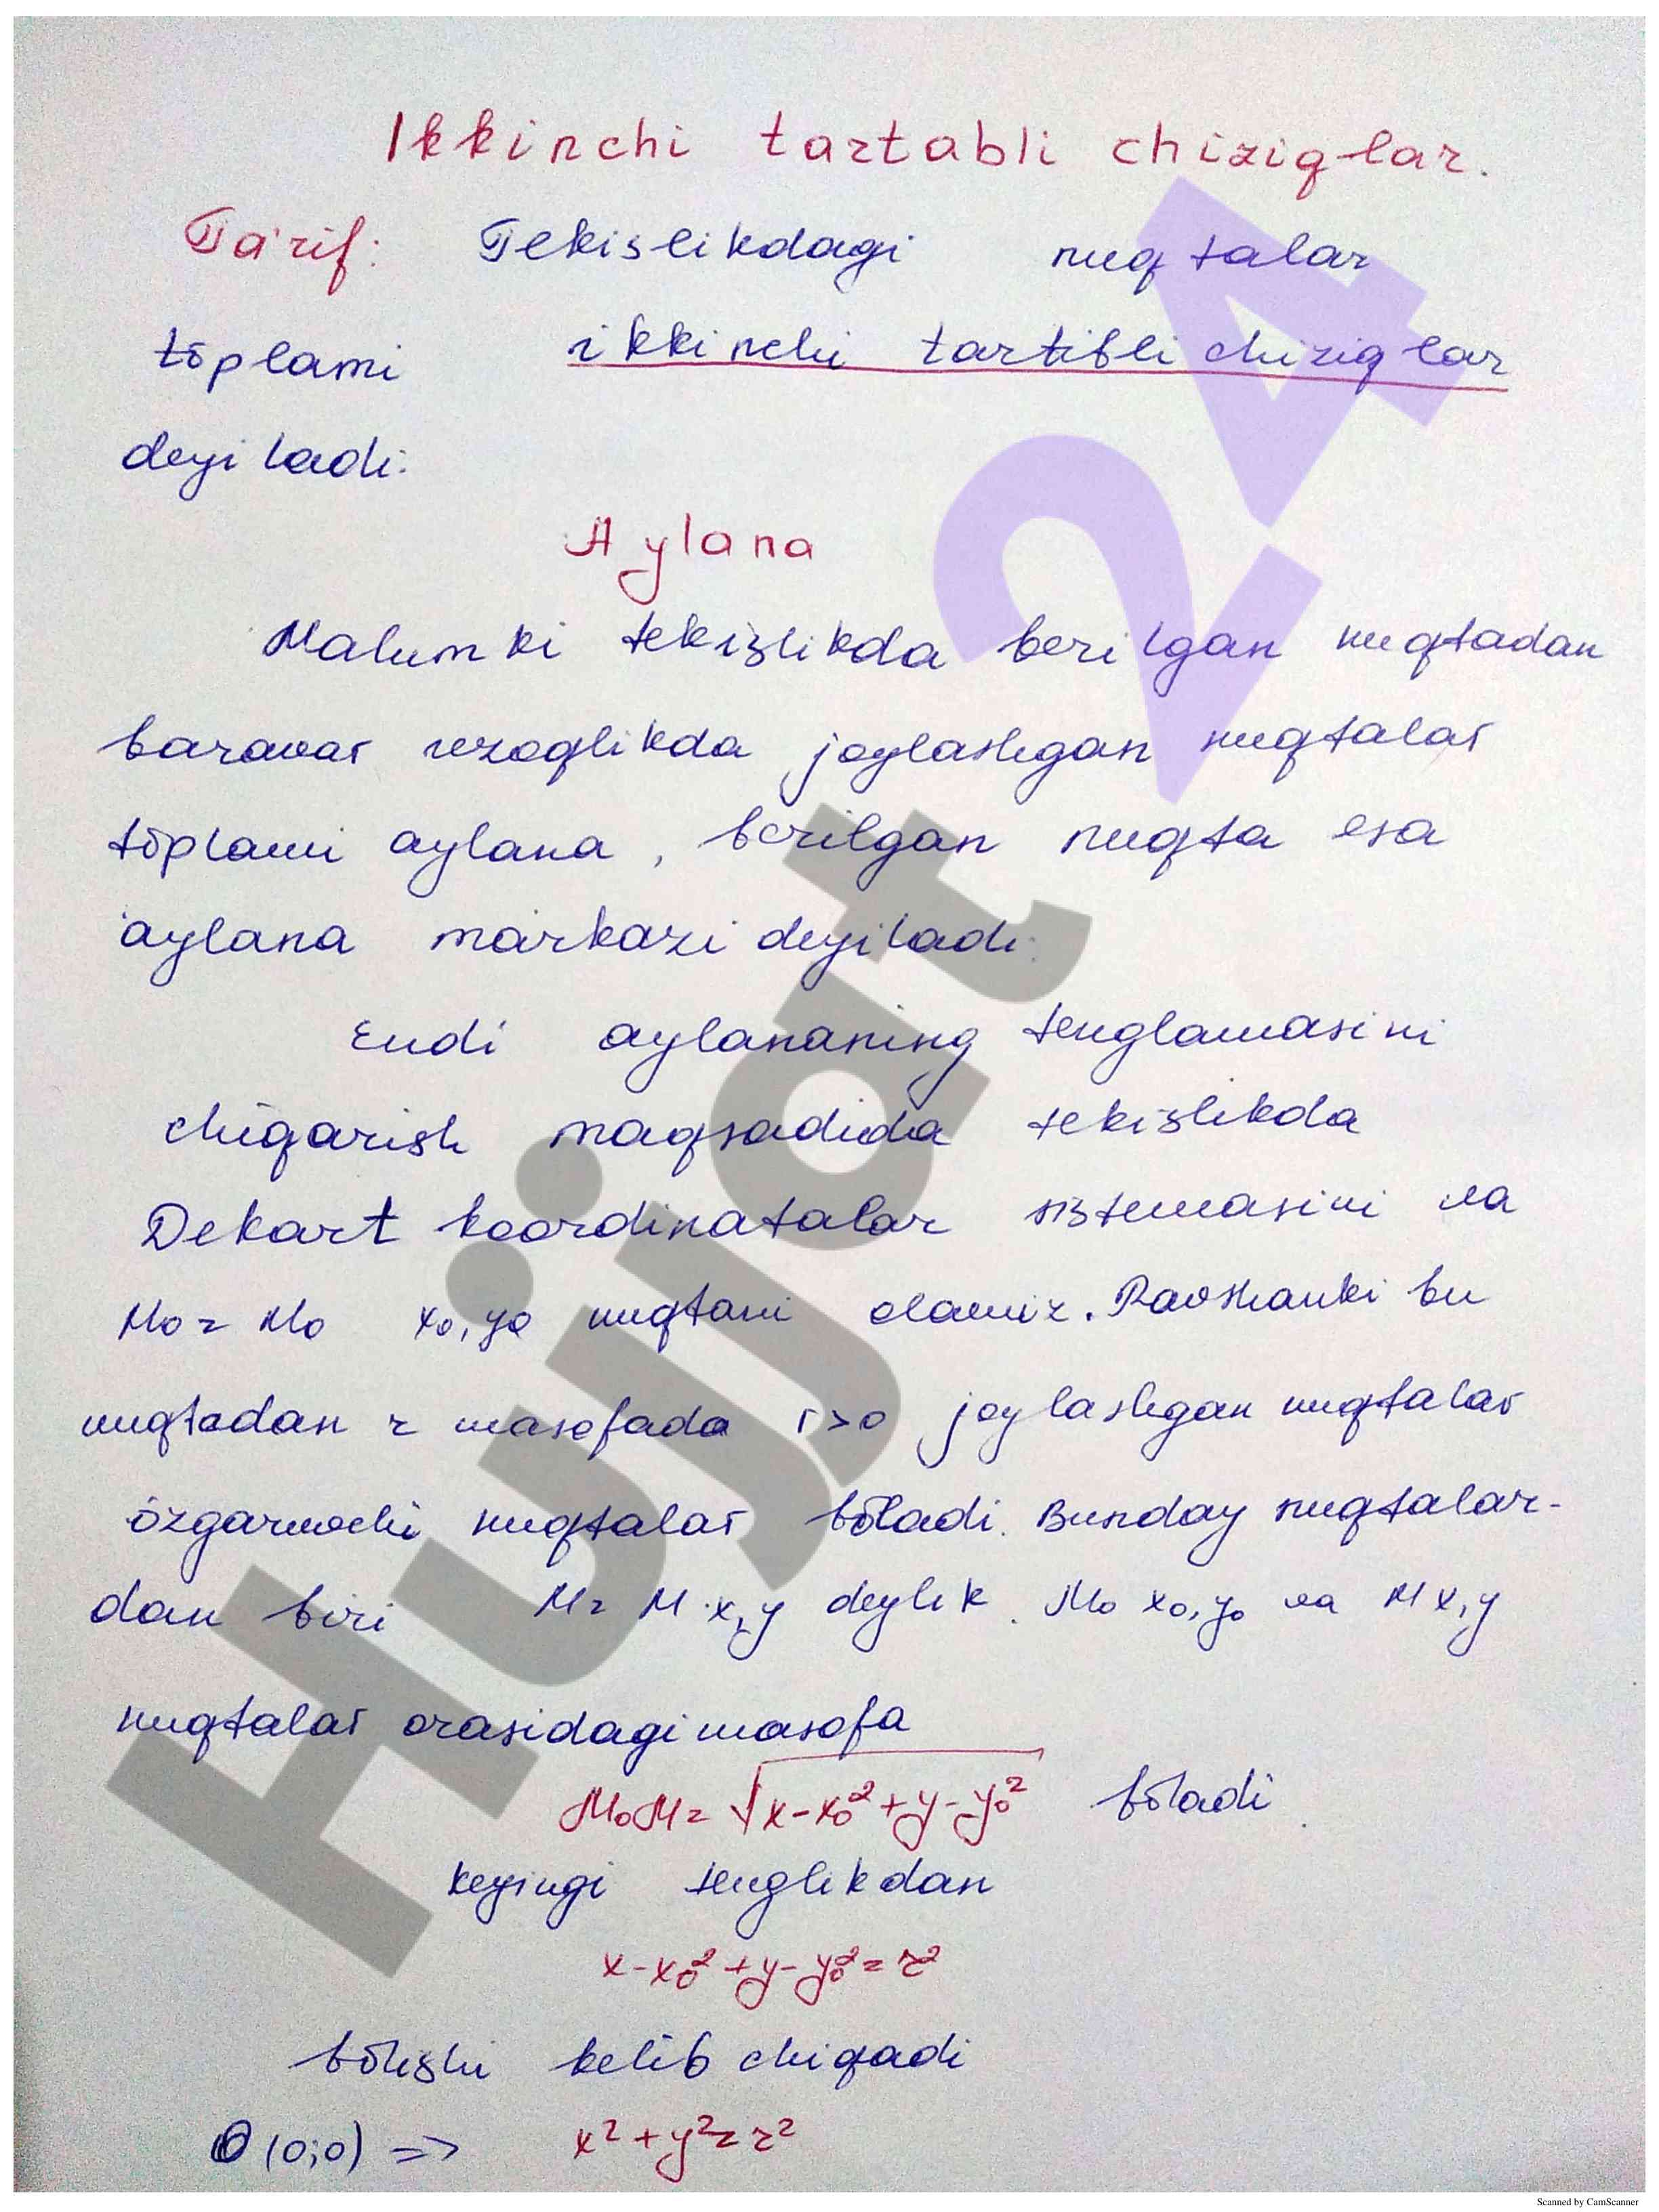 Ikkinchi tartabli chiziqlar.
Ta'rif: Tekislikdagi nuqtalar
tõplami ikkinchi tartibli chiziqlar
deyiladi.
Aylana
Malumki tekislikda berilgan nuqtadan
baravar uzoqlikda joylashgan nuqtalar
tõplami aylana, berilgan nuqta esa
aylana markazi deyiladi.
Endi aylananing tenglamasini
chiqarish maqsadida tekislikda
Dekart koordinatalar sistemasini va
M₀ = M₀ x₀, y₀ nuqtani olamiz. Ravshanki bu
nuqtadan r masofada r>0 joylashgan nuqtalar
õzgaruvchi nuqtalar bõladi. Bunday nuqtalar-
dan biri M = M x, y deylik. M₀ x₀, y₀ va M x, y
nuqtalar orasidagi masofa
M₀M = √x-x₀²+y-y₀² bõladi.
keyingi tenglikdan
x-x₀²+y-y₀²=r²
bõlishi kelib chiqadi
O (0;0) => x²+y²=r²
Hujjat 24
Scanned by CamScanner